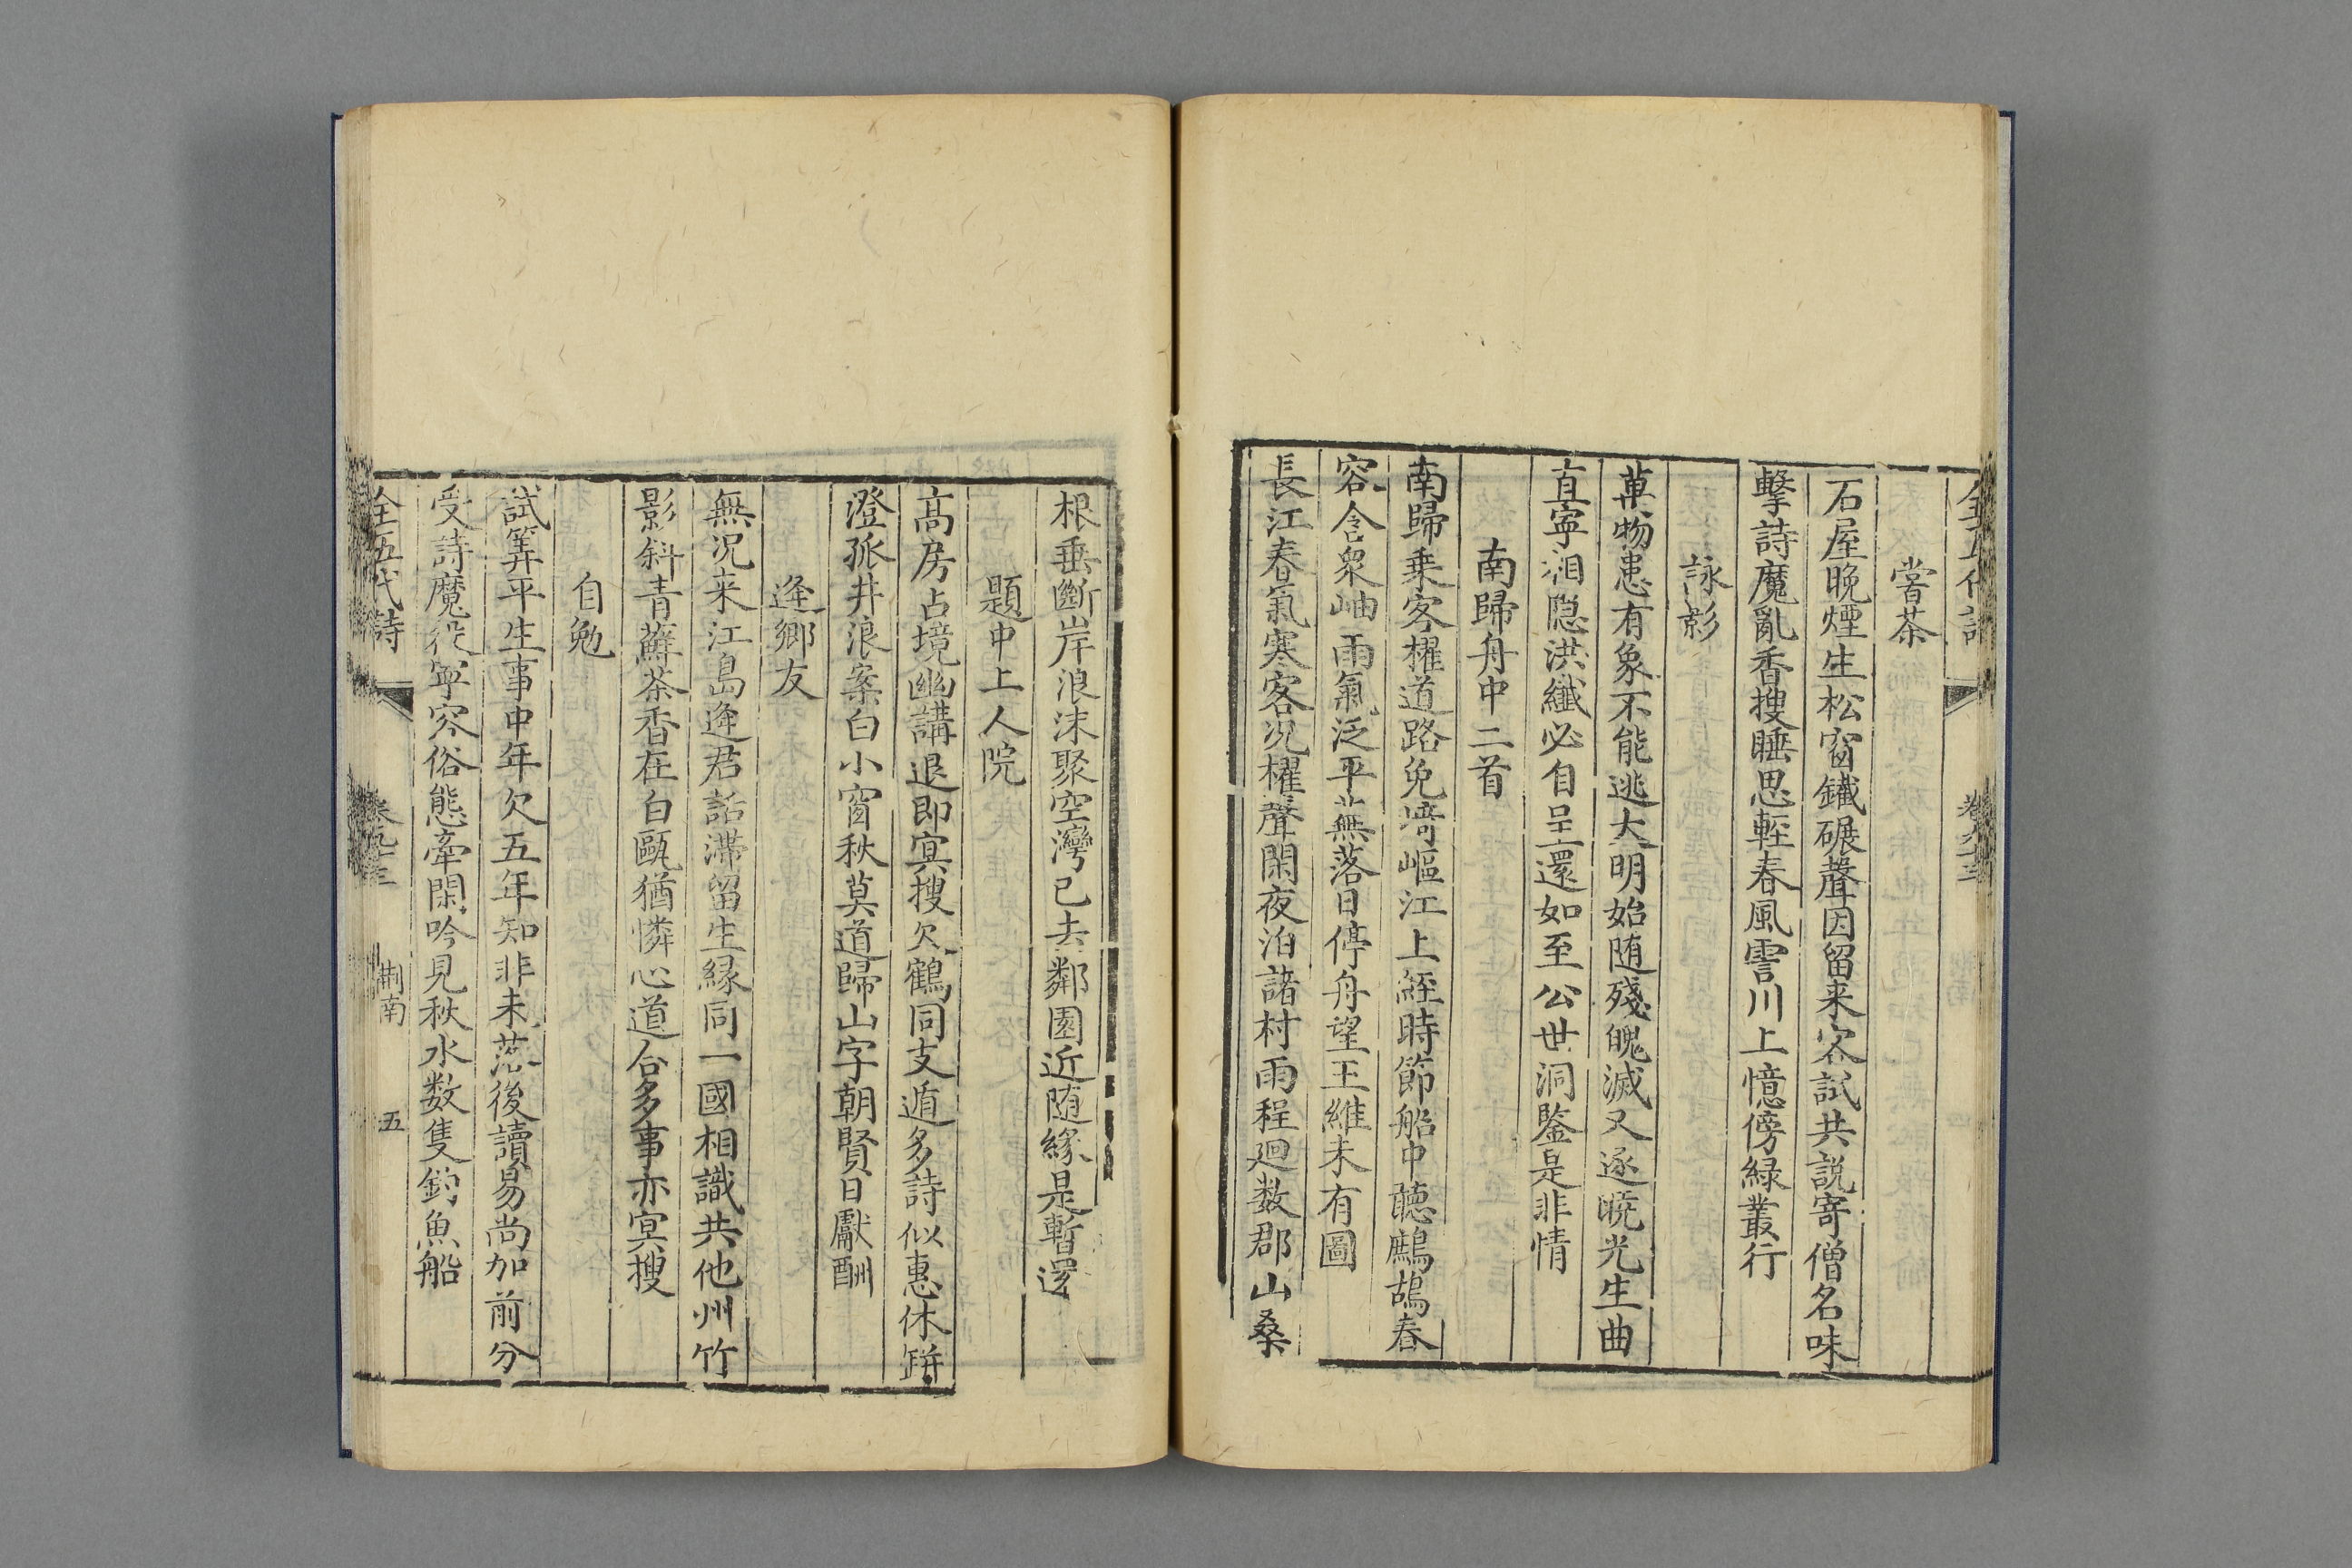 全五代詩 卷九十三
嘗茶
石屋晚煙生松窗鐵碾聲因留来客試共説寄僧名味
擊詩魔亂香搜睡思輕春風霅川上憶傍緑叢行
詠影
萬物患有象不能逃大明始随殘魄滅又逐曉光生曲
直寧相隐洪纖必自呈還如至公世洞鑒是非情
南歸舟中二首
南歸乗客櫂道路免崎嶇江上經時節船中聽鷓鴣春
容含衆岫雨氣泛平蕪落日停舟望王維未有圖
長江春氣寒客况櫂聲閑夜泊諸村雨程廻数郡山桑
根垂斷岸浪沫聚空灣已去鄰園近随緣是暫還
題中上人院
高房占境幽講退即冥搜欠鶴同支遁多詩似惠休缾
澄孤井浪案白小窗秋莫道歸山字朝賢日獻酬
逢鄉友
無况来江島逢君話滯留生緣同一國相識共他州竹
影斜青蘚茶香在白甌猶憐心道合多事亦冥搜
自勉
試筭平生事中年欠五年知非未落後讀易尚加前分
受詩魔役寧容俗態牽閑吟見秋水数隻釣魚船
全五代詩 卷九十三 荆南 五